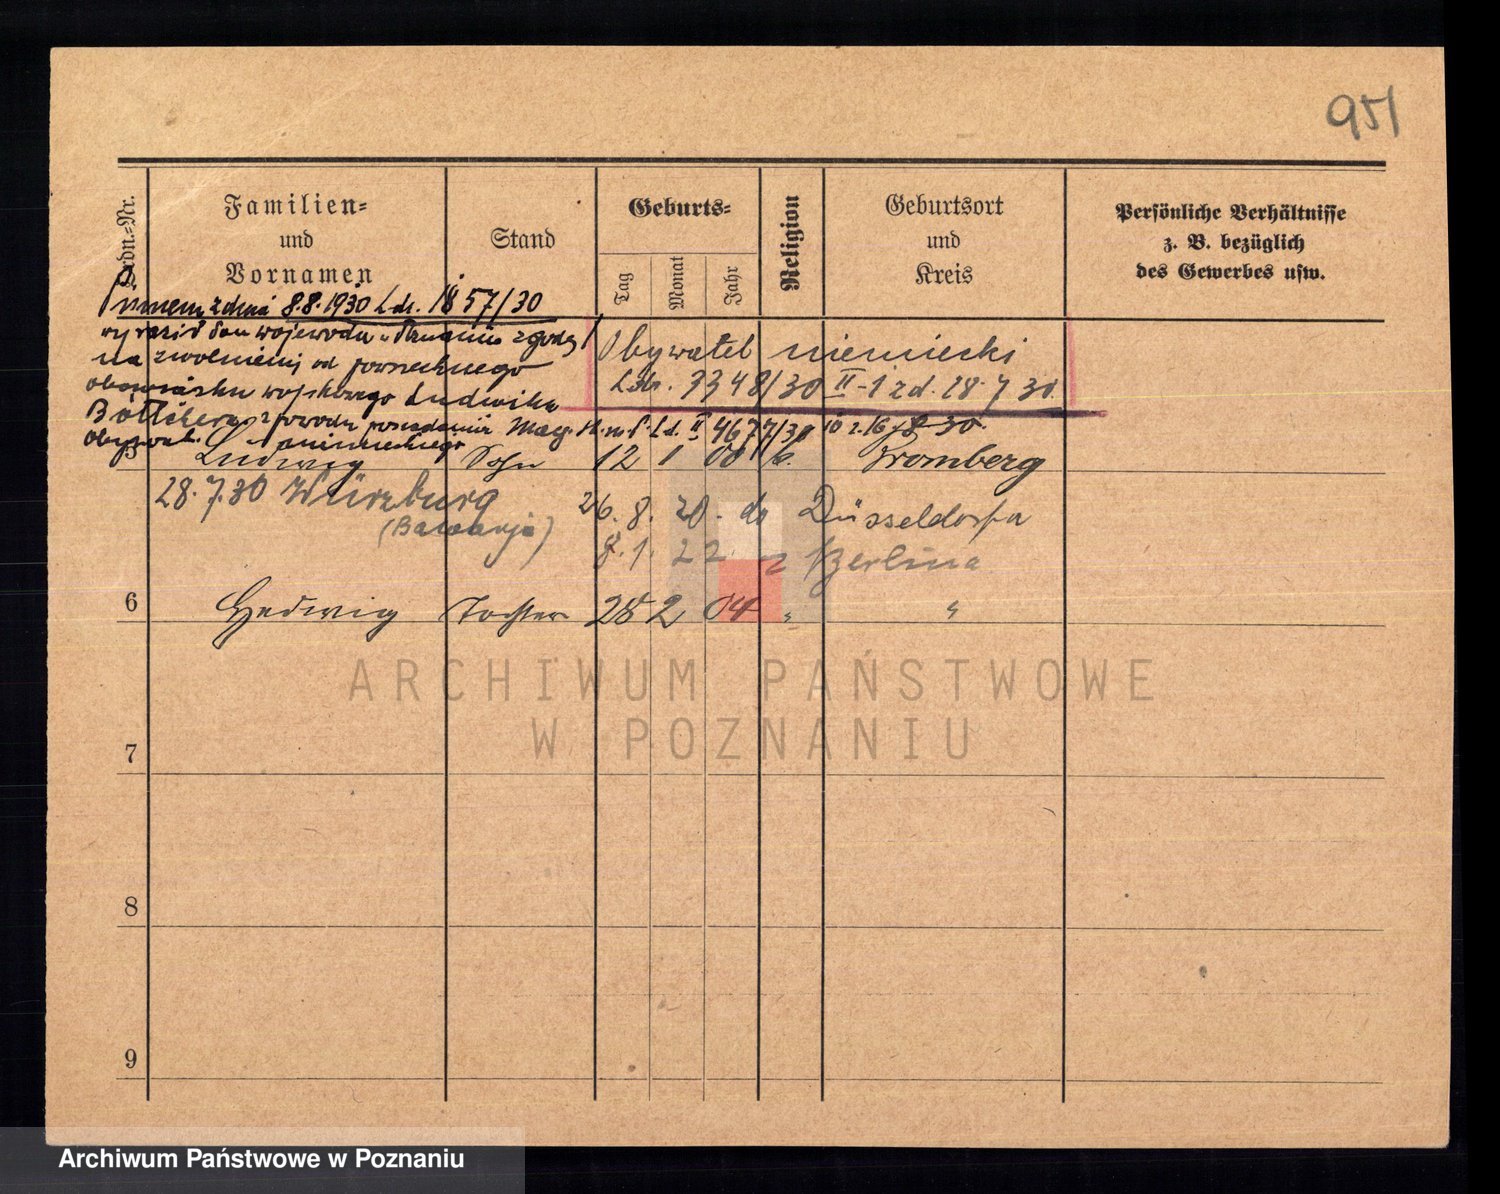 951
Ordn.-Nr.
Familien-
und
Vornamen
Stand
Geburts-
Tag
Monat
Jahr
Religion
Geburtsort
und
Kreis
Persönliche Verhältnisse
z. B. bezüglich
des Gewerbes usw.
Pismem z dnia 8.8.1930 Ldz. 57/30
wyraził Pan wojewoda w Poznaniu zgodę
na zwolnienie od powszechnego
obowiązku wojskowego Ludwika
Böttchera z powodu posiadania
obywat. niemieckiego
Obywatel niemiecki
Ldz. 3348/30 II-1 z d. 28.7.30.
Ld. II 4677/30 z 16.8.30.
5 Ludwig Sohn 12 1 00 k. Bromberg
28.7.30 Würzburg
(Bawarja)
26. 8. 20. do Düsseldorfu
8. 1. 22 z Berlina
6 Hedwig Tochter 25 2 04 " "
7
8
9
ARCHIWUM PAŃSTWOWE
W POZNANIU
Archiwum Państwowe w Poznaniu